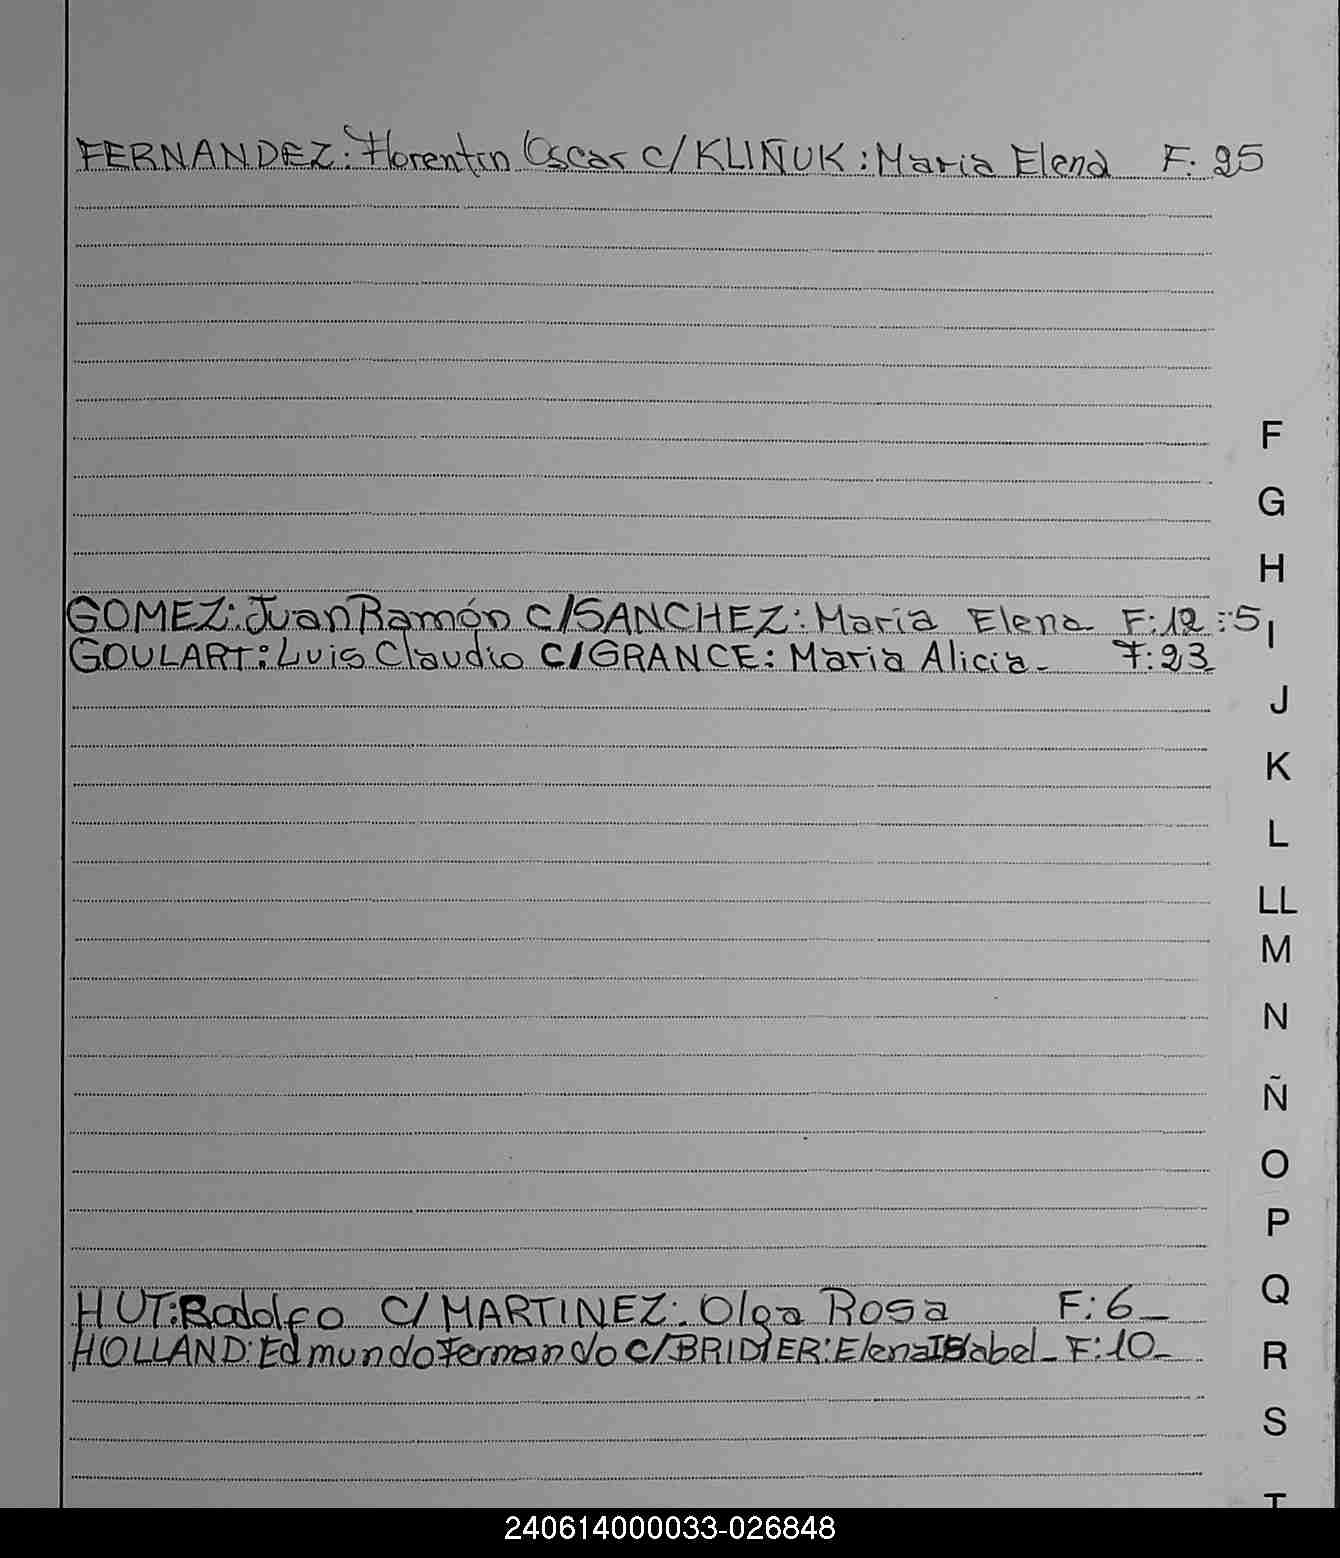 FERNANDEZ: Florentin Oscar c/ KLIÑUK: Maria Elena F: 25
F
G
H
GOMEZ: Juan Ramón C/ SANCHEZ: María Elena F: 12 :: 5
I
GOULART: Luis Claudio C/ GRANCE: Maria Alicia - F: 23
J
K
L
LL
M
N
Ñ
O
P
Q
HUT: Rodolfo C/ MARTINEZ: Olga Rosa F: 6_
HOLLAND: Edmundo Fernando c/ BRIDIER: Elena ISabel - F: 10_
R
S
T
240614000033-026848